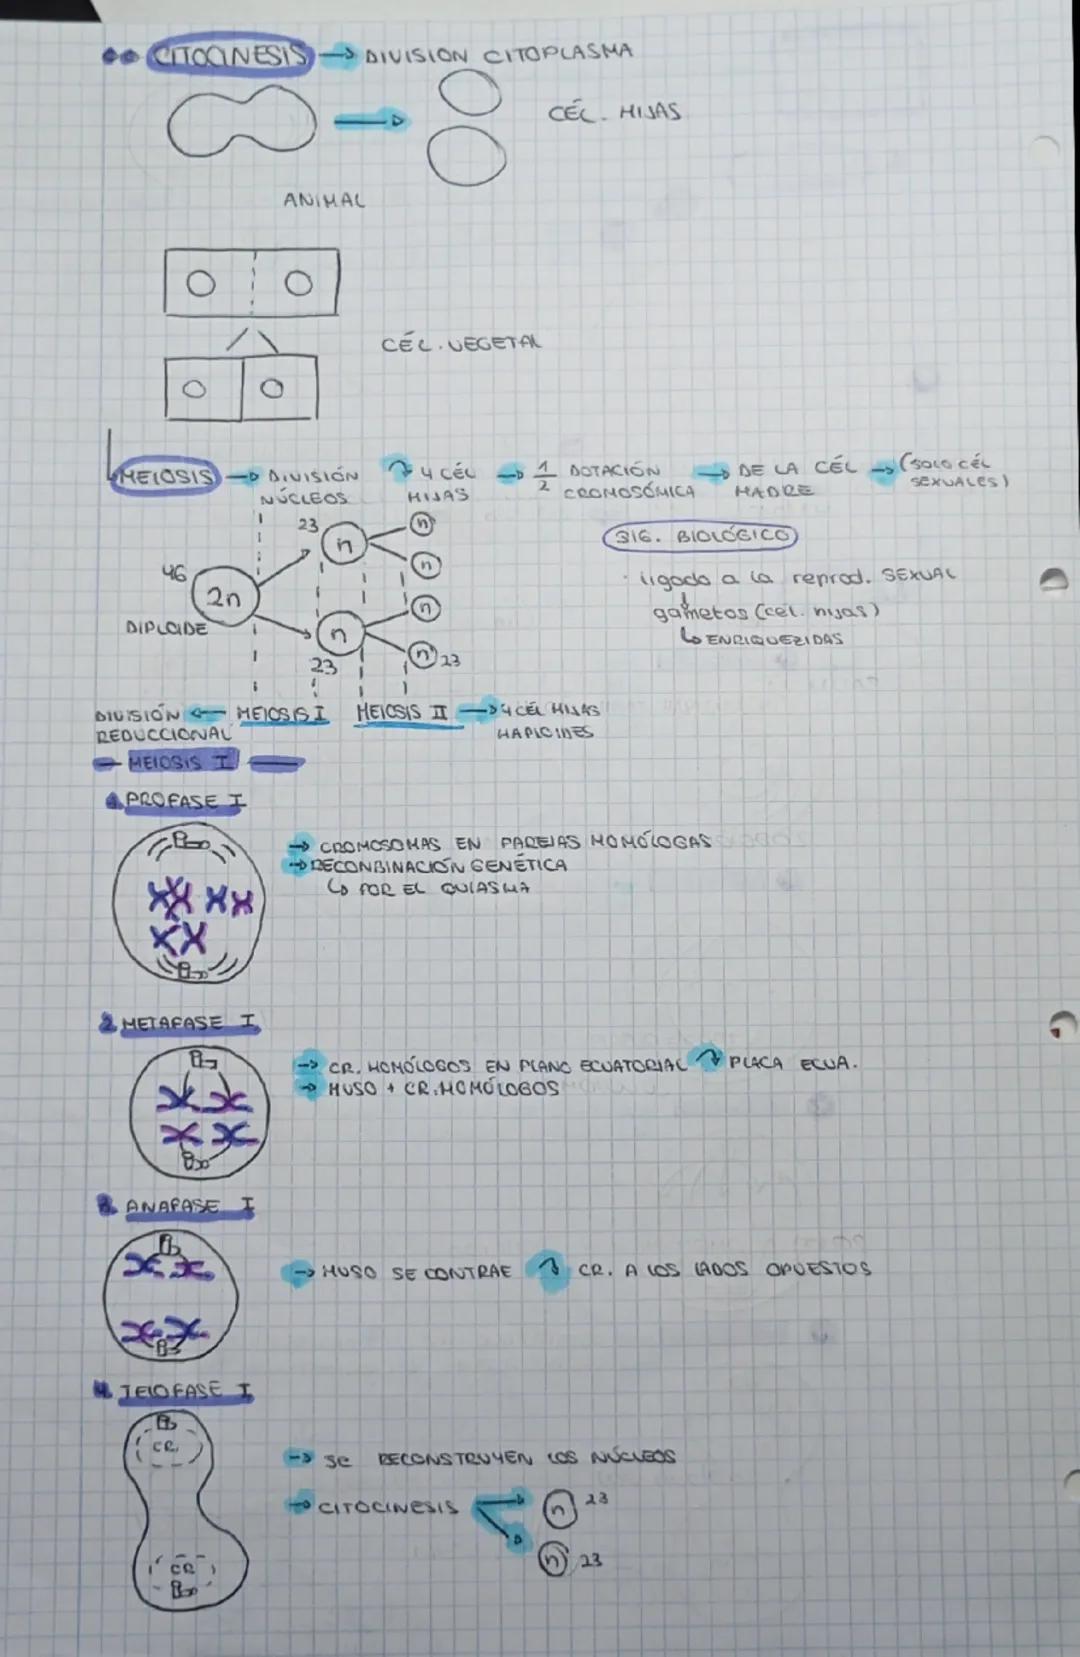 CITOCINESIS → DIVISION CITOPLASMA
CÉL. HIJAS
ANIMAL
CÉL. VEGETAL
MEIOSIS → DIVISIÓN NÚCLEOS ↷ 4 CÉL HIJAS → 1/2 DOTACIÓN CROMOSÓMICA → DE LA CÉL MADRE → (SOLO CÉL SEXUALES)
SIG. BIOLÓGICO
· ligado a la reprod. SEXUAL
↓
gametos (cél. hijas)
↳ ENRIQUEZIDAS
46
2n
DIPLOIDE
23
n
n
23
n
n
n
n 23
DIVISIÓN REDUCCIONAL ← MEIOSIS I
MEIOSIS II → 4 CÉL HIJAS HAPLOIDES
— MEIOSIS I —
1. PROFASE I
→ CROMOSOMAS EN PAREJAS HOMÓLOGAS
→ RECONBINACIÓN GENÉTICA
↳ POR EL QUIASMA
2. METAFASE I
→ CR. HOMÓLOGOS EN PLANO ECUATORIAL ↷ PLACA ECUA.
→ HUSO + CR. HOMÓLOGOS
3. ANAFASE I
→ HUSO SE CONTRAE ↷ CR. A LOS LADOS OPUESTOS
4. TELOFASE I
CR.
CR
→ SE RECONSTRUYEN LOS NÚCLEOS
→ CITOCINESIS
n 23
n 23